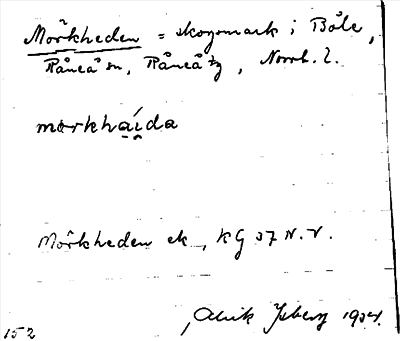 Mörkheden = skogsmark i Böle,
Råneå sn, Råneå tg, Norrb. l.
mörkhaida
Mörkheden ek, KG 37 N.V.
Alvik 1924.
152